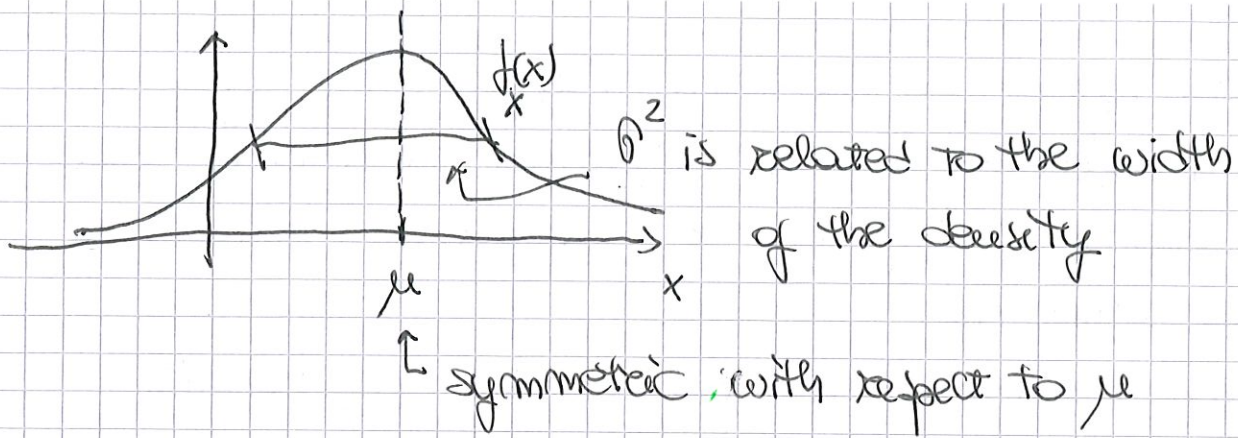 f_x(x)
σ² is related to the width
of the density
μ
x
symmetric with respect to μ